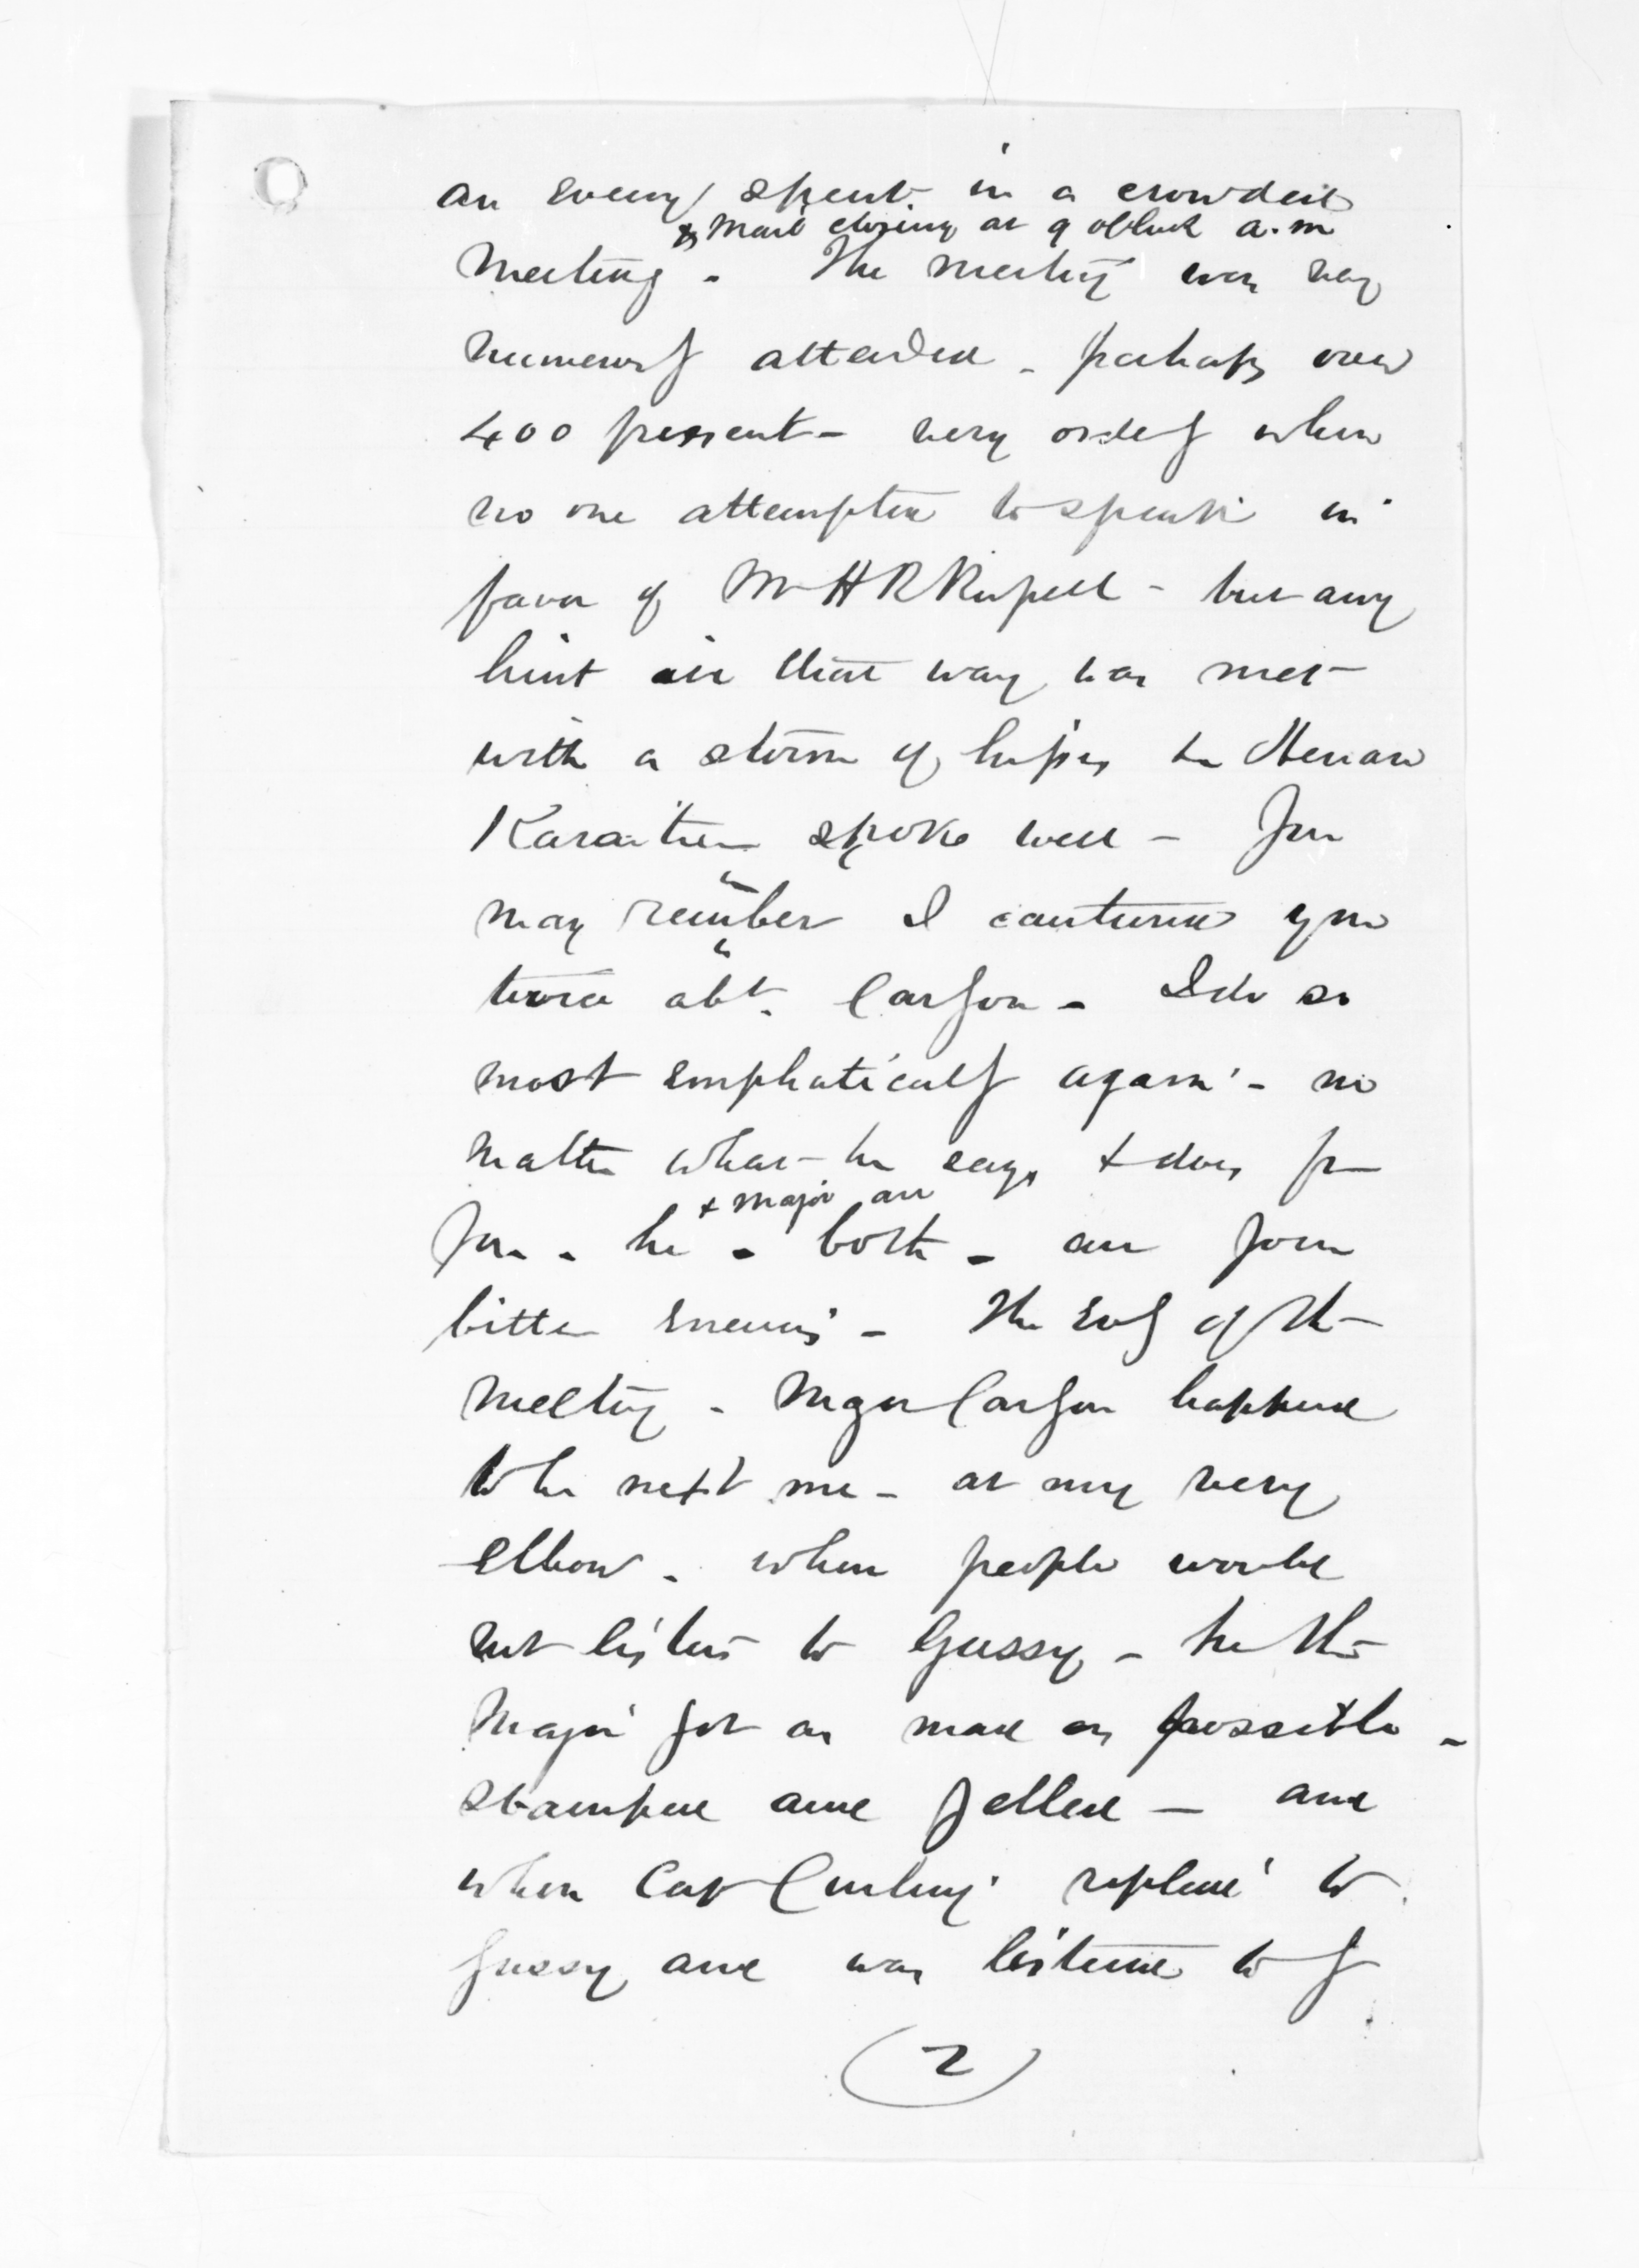 an eveng spent in a crowded
& mail closing at 9 oclock a.m
Meeting - The meeting was very
numerously attended - perhaps over
400 present - very orderly when
no one attempted to speak in
favor of Mr H R Russell - but any
hint in that way was met
with a storm of hisses to Henare
Karaitiana spoke well - You
may remember I cautioned you
twice abt. Carlyon - I do so
most emphatically again - no
matter what he says & does for
you - he - both - are your
& Major are
bitter enemies - The end of the
meeting - Major Carlyon happened
to be next me - at my very
elbow - when people would
not listen to Gussy - he the
Major got as mad as possible -
stamped and yelled - and
when Capt Curling replied to
Gussy and was listened to by
(2)